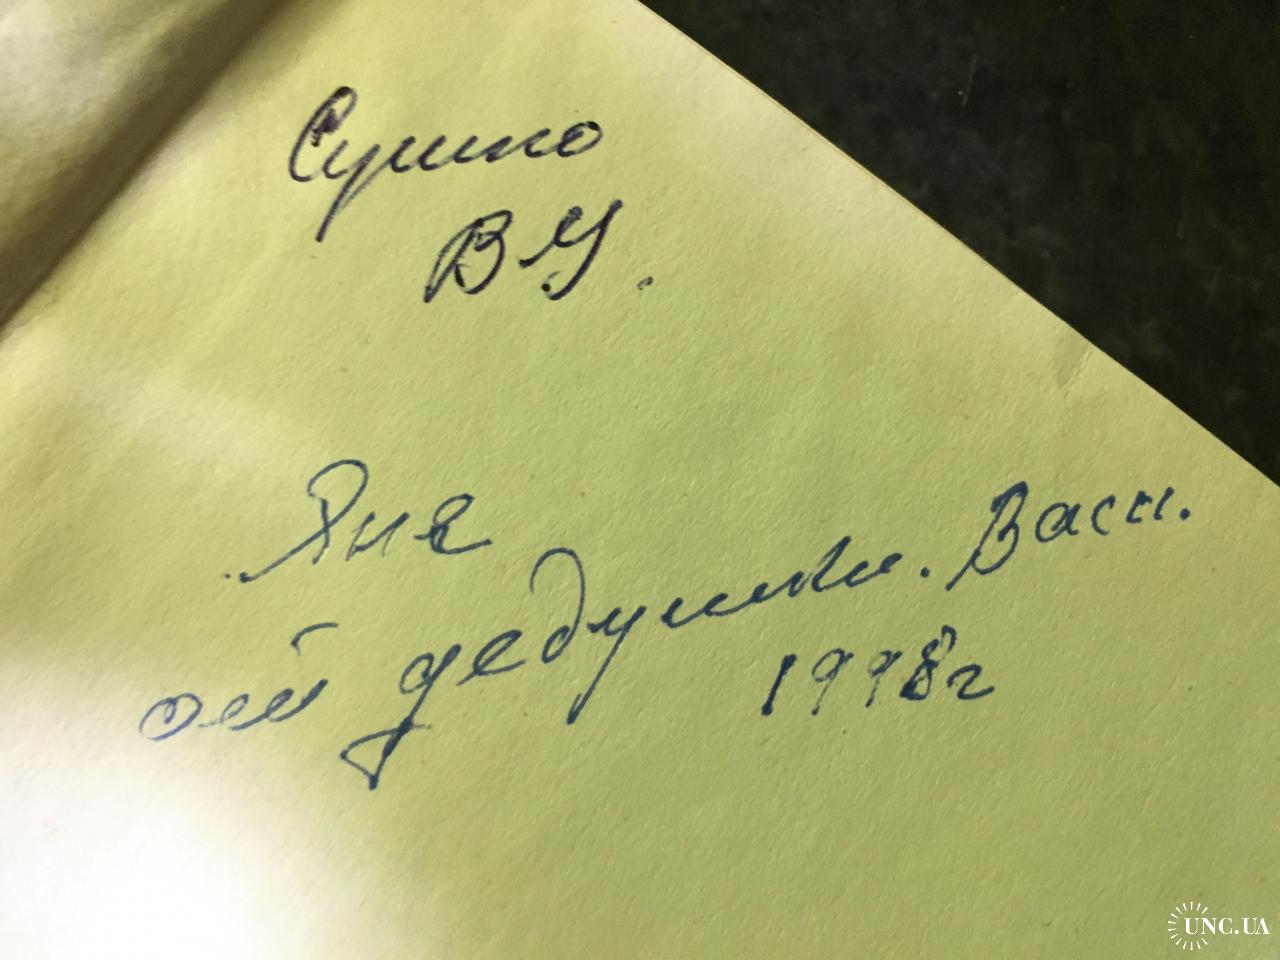 Сушко
В У.
Яне
от дедушки. Васи.
1998г
UNC.UA